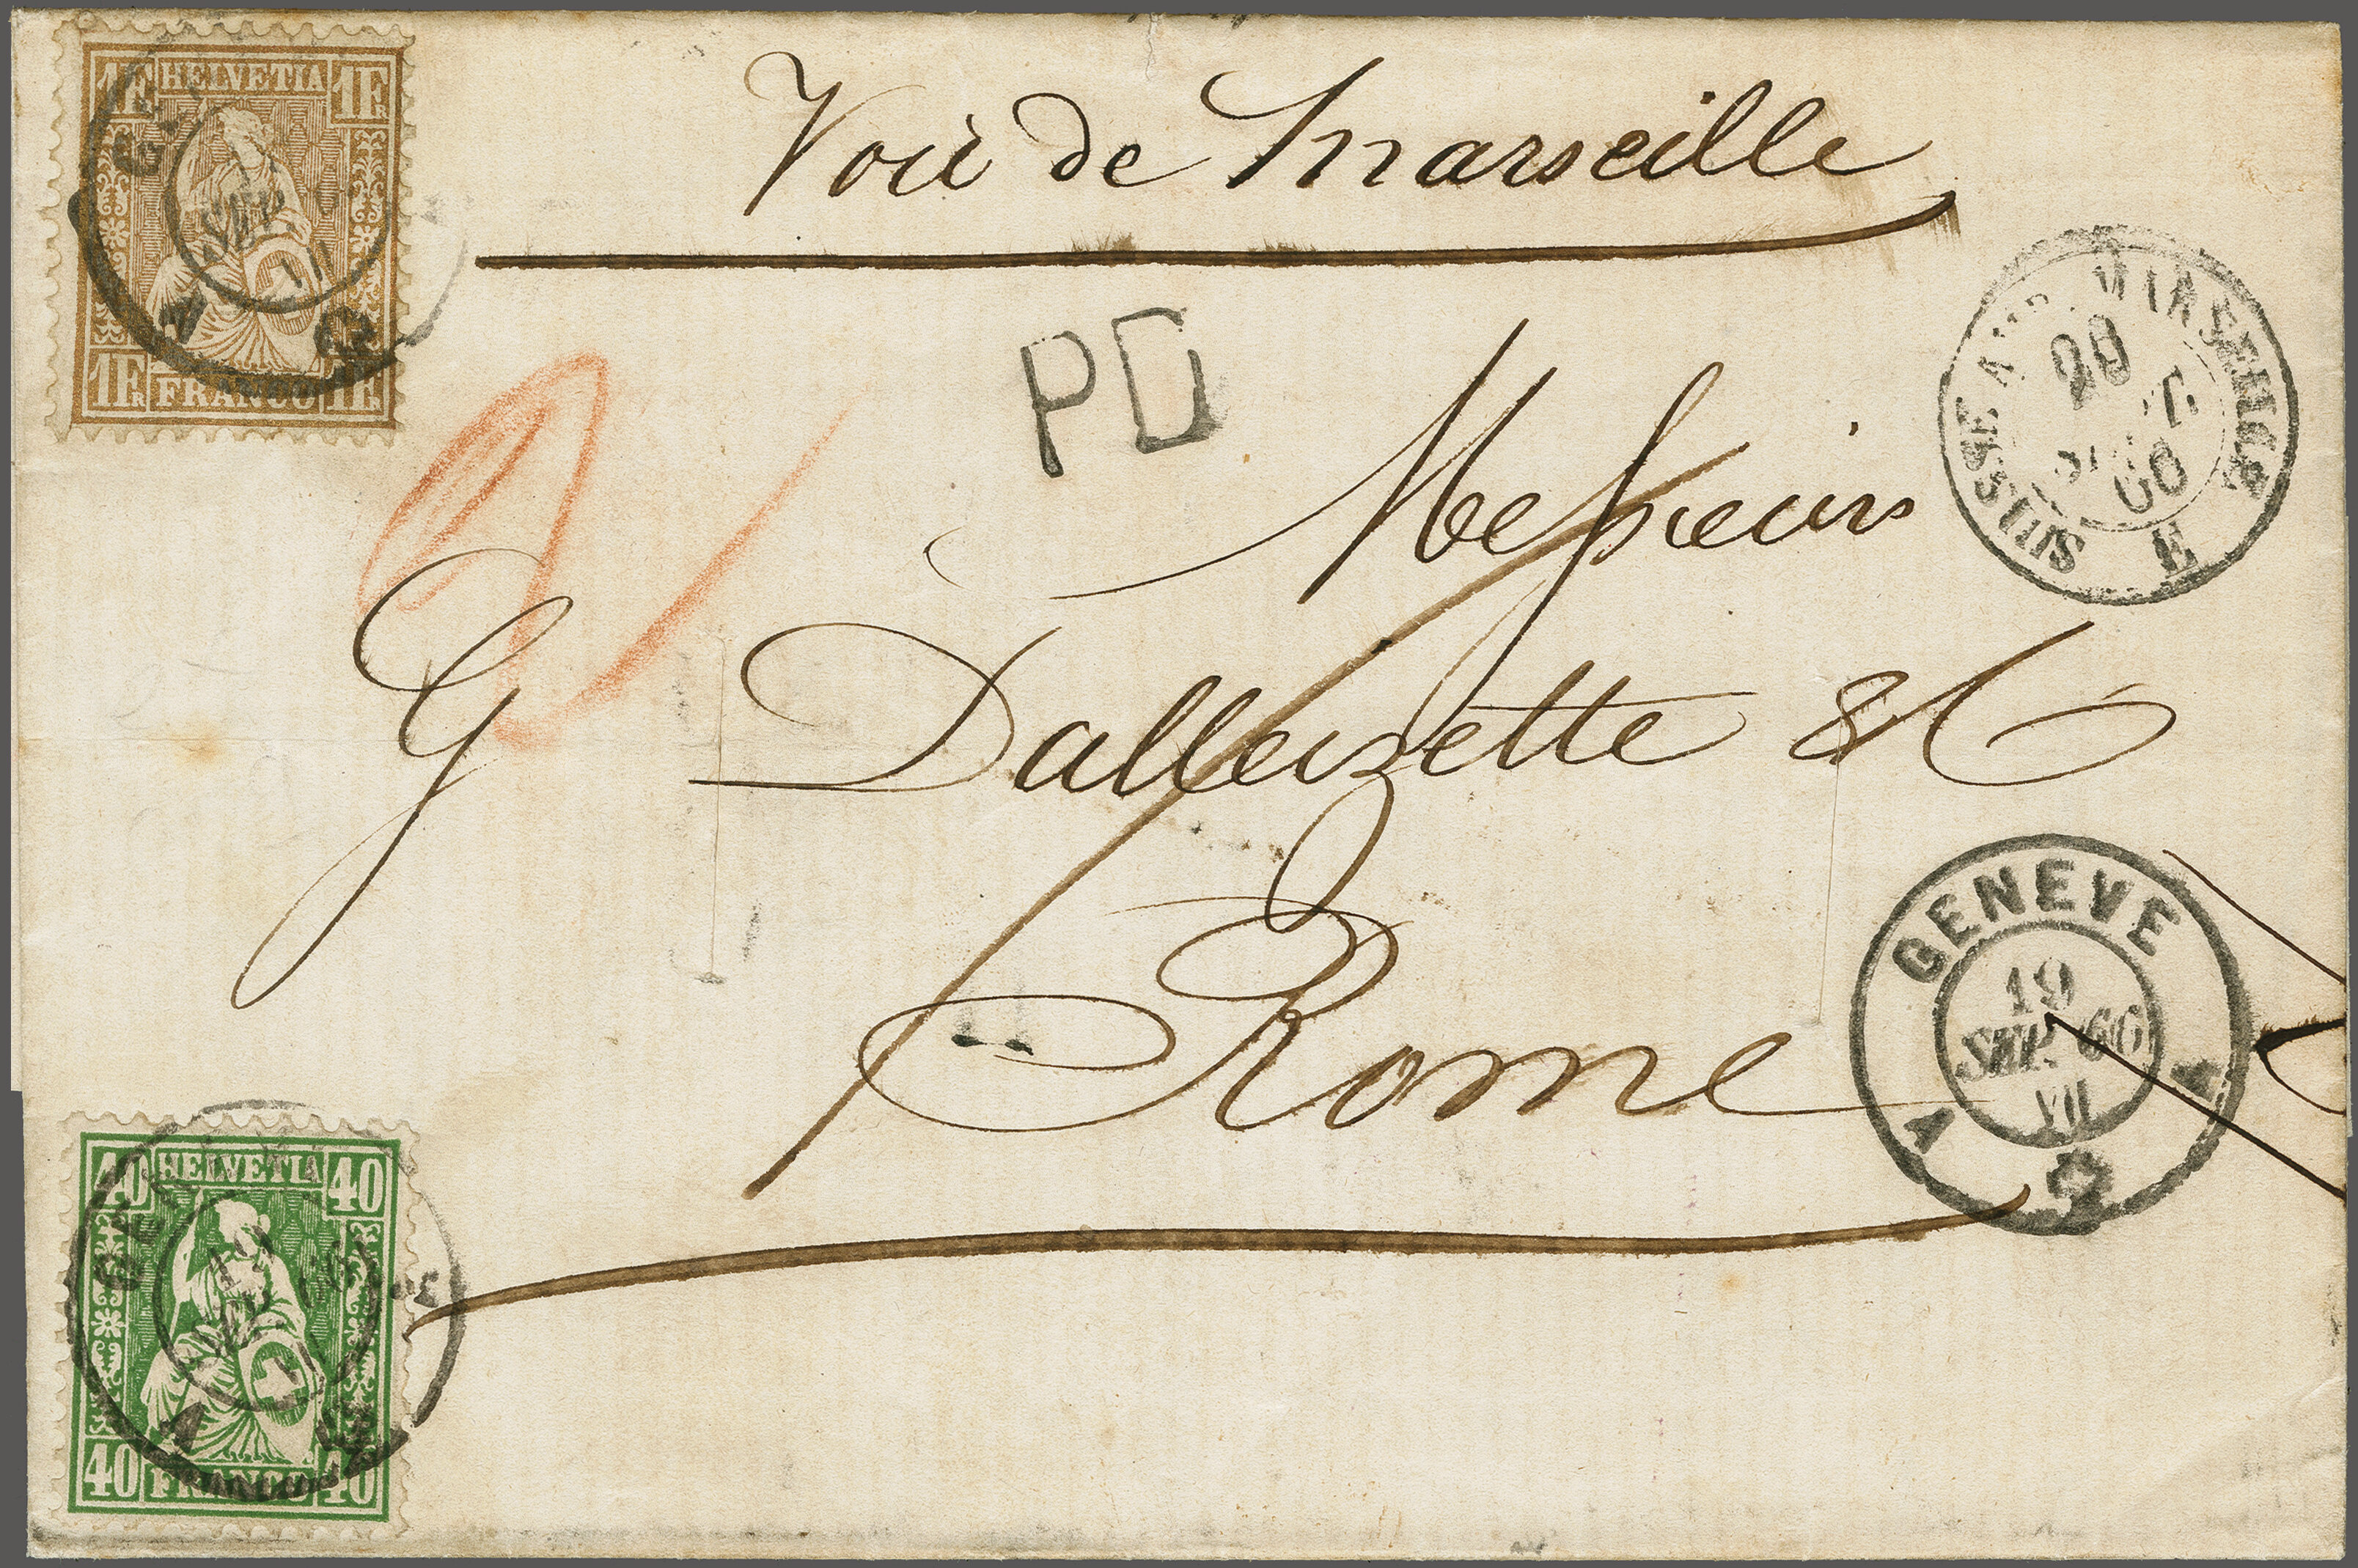 1FR HELVETIA 1FR
1FR FRANCO 1FR
Voie de Marseille
PD
SUISSE AMB. MARSEILLE
20
SEPT
66
E
Messieurs
G Dalleizette & C
Rome
GENEVE
19
SEP. 66
VII
40 HELVETIA 40
40 FRANCO 40